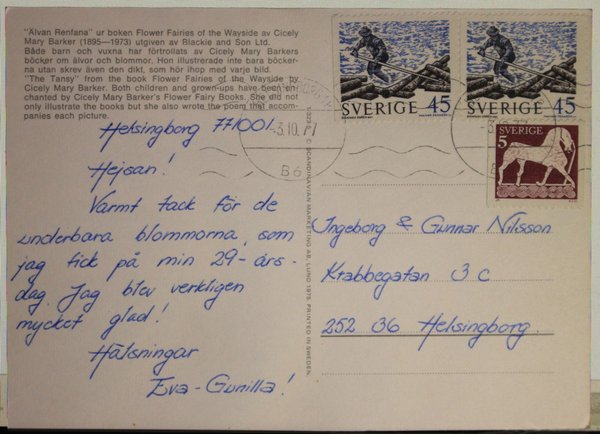 "Älvan Renfana" ur boken Flower Fairies of the Wayside av Cicely
Mary Barker (1895—1973) utgiven av Blackie and Son Ltd.
Både barn och vuxna har förtrollats av Cicely Mary Barkers
böcker om älvor och blommor. Hon illustrerade inte bara böcker-
na utan skrev även den dikt, som hör ihop med varje bild.
"The Tansy" from the book Flower Fairies of the Wayside by
Cicely Mary Barker. Both children and grown-ups have been en-
chanted by Cicely Mary Barker's Flower Fairy Books. She did not
only illustrate the books but she also wrote the poem that accom-
panies each picture.
Helsingborg 771001
Hejsan!
Varmt tack för de
underbara blommorna, som
jag fick på min 29-års-
dag. Jag blev verkligen
mycket glad!
Hälsningar
Eva-Gunilla!
© SCANDINAVIAN MARKETING AB, LUND 1976. PRINTED IN SWEDEN.
SVERIGE 45
SVERIGE 45
SVERIGE
5
-3.10.77
B6
Ingeborg & Gunnar Nilsson
Krabbegatan 3 C
252 36 Helsingborg.